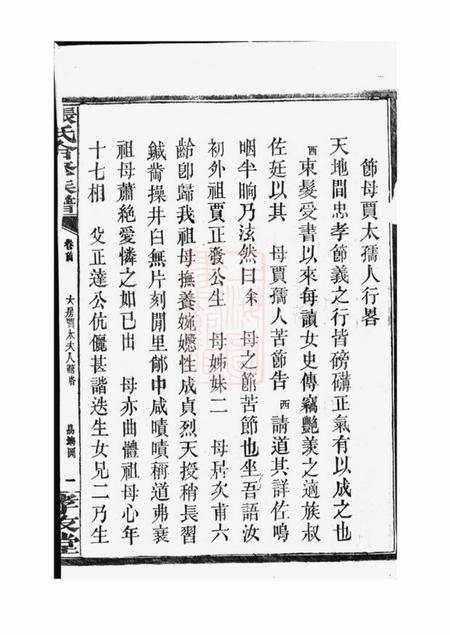 節母賈太孺人行畧
天地間忠孝節義之行皆磅礴正氣有以成之也
酉束髮受書以來每讀女史傳竊艷羨之適族叔
佐廷以其 母賈孺人苦節告 酉 請道其詳佐鳴
咽半晌乃泫然曰余 母之節苦節也坐吾語汝
初外祖賈正發公生 母姊妹二 母居次甫六
齡卽歸我祖母撫養婉嫕性成貞烈天授稍長習
鍼黹操井臼無片刻閒里郁中咸嘖嘖稱道弗衰
祖母蕭絶愛憐之如已出 母亦曲體祖母心年
十七相 父正達公伉儷甚諧迭生女兄二乃生
張氏合修族譜
卷首
大房賈太夫人節畧
一
孝友堂